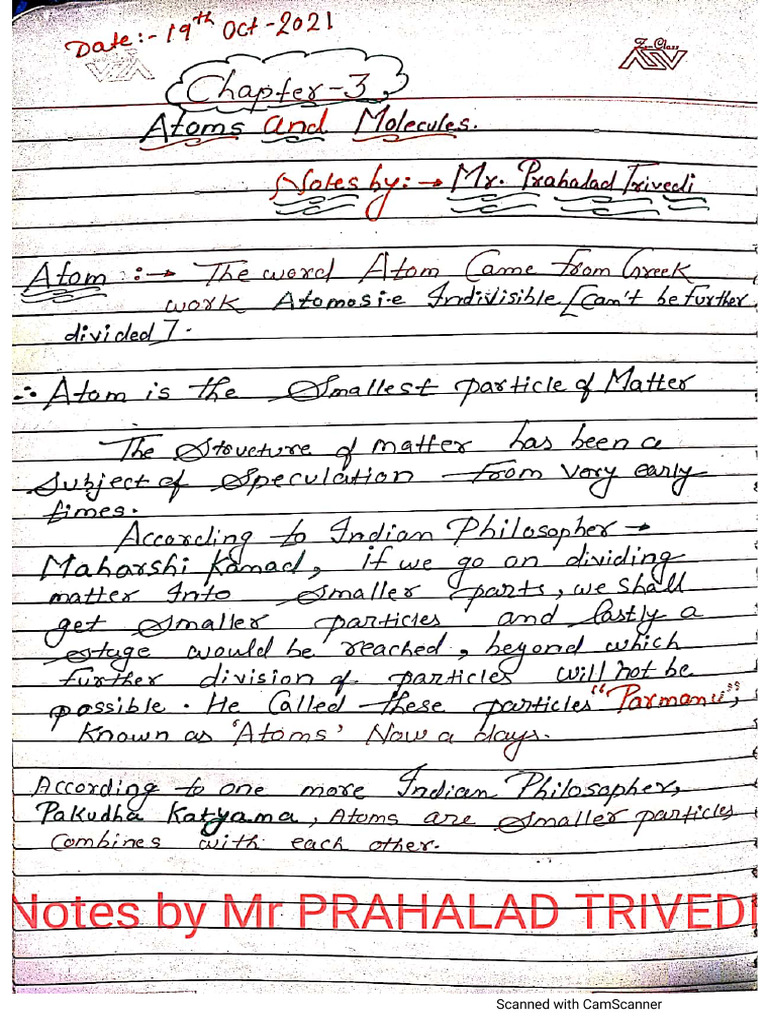 Date:- 19th Oct-2021
Chapter-3,
Atoms and Molecules.
Notes by:→ Mr. Prahalad Trivedi
Atom :→ The word Atom Came from Greek
work Atomos i.e Indivisible [Can't be further
divided].
∴ Atom is the Smallest particle of Matter
The Structure of matter has been a
Subject of Speculation from very early
times.
According to Indian Philosopher →
Maharshi Kanad, if we go on dividing
matter Into Smaller parts, we shall
get Smaller particles and lastly a
stage would be reached, beyond which
further division of particles will not be
possible. He Called these particles "Parmanu",
Known as 'Atoms' Now a days.
According to one more Indian Philosopher,
Pakudha Katyama, Atoms are Smaller particles
Combines with each other.
Notes by Mr PRAHALAD TRIVEDI
Scanned with CamScanner